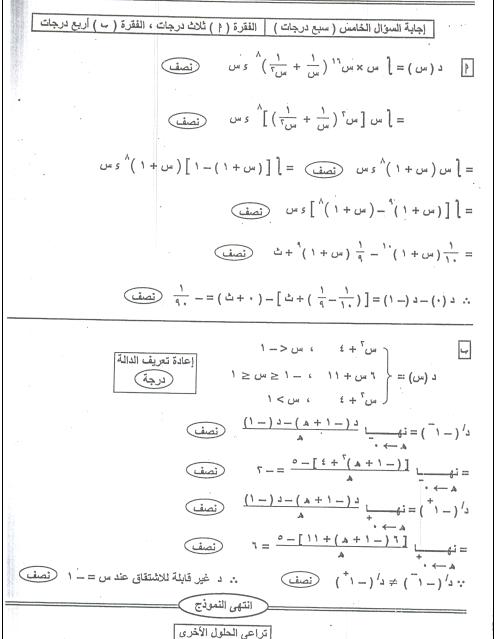 إجابة السؤال الخامس ( سبع درجات ) | الفقرة ( أ ) ثلاث درجات ، الفقرة ( ب ) أربع درجات
أ د ( س ) = ∫ س × س^١٦ ( ١/س + ١/س^٢ )^٨ ء س نصف
= ∫ س [ س^٢ ( ١/س + ١/س^٢ ) ]^٨ ء س نصف
= ∫ س ( س + ١ )^٨ ء س نصف = ∫ [ ( س + ١ ) – ١ ] ( س + ١ )^٨ ء س
= ∫ [ ( س + ١ )^٩ – ( س + ١ )^٨ ] ء س نصف
= ١/١٠ ( س + ١ )^١٠ – ١/٩ ( س + ١ )^٩ + ث نصف
∴ د ( ٠ ) – د ( – ١ ) = [ ( ١/١٠ – ١/٩ ) + ث ] – ( ٠ + ث ) = – ١/٩٠ نصف
ب د ( س ) = { س^٢ + ٤ ، س < – ١
٦ س + ١١ ، – ١ ≤ س ≤ ١
س^٢ + ٤ ، س > ١
إعادة تعريف الدالة
درجة
د/ ( – ١^– ) = نهــا هـ ← ٠^– د ( – ١ + هـ ) – د ( – ١ ) / هـ نصف
= نهــا هـ ← ٠^– [ ( – ١ + هـ )^٢ + ٤ ] – ٥ / هـ = – ٢ نصف
د/ ( – ١^+ ) = نهــا هـ ← ٠^+ د ( – ١ + هـ ) – د ( – ١ ) / هـ نصف
= نهــا هـ ← ٠^+ [ ٦ ( – ١ + هـ ) + ١١ ] – ٥ / هـ = ٦ نصف
∵ د/ ( – ١^– ) ≠ د/ ( – ١^+ ) نصف ∴ د غير قابلة للاشتقاق عند س = – ١ نصف
انتهى النموذج
تراعي الحلول الأخرى